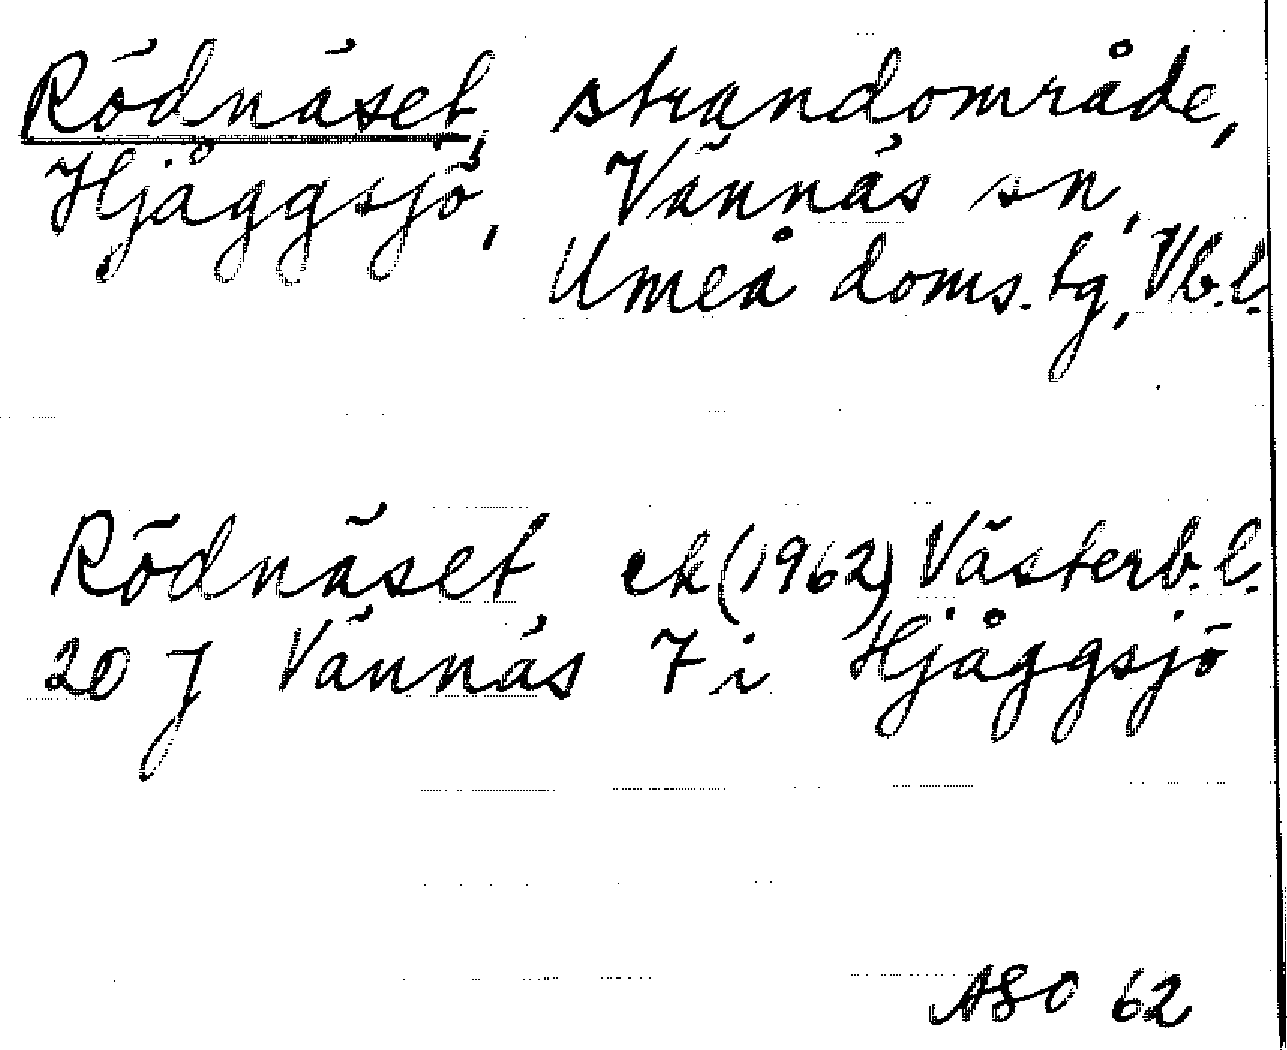 Rödnäset, strandområde,
Hjåggsjö, Vännäs sn,
Umeå doms. tg, Vb.l.
Rödnäset ek (1962) Västerb.l.
20 J Vännäs 7 i Hjåggsjö
ASO 62